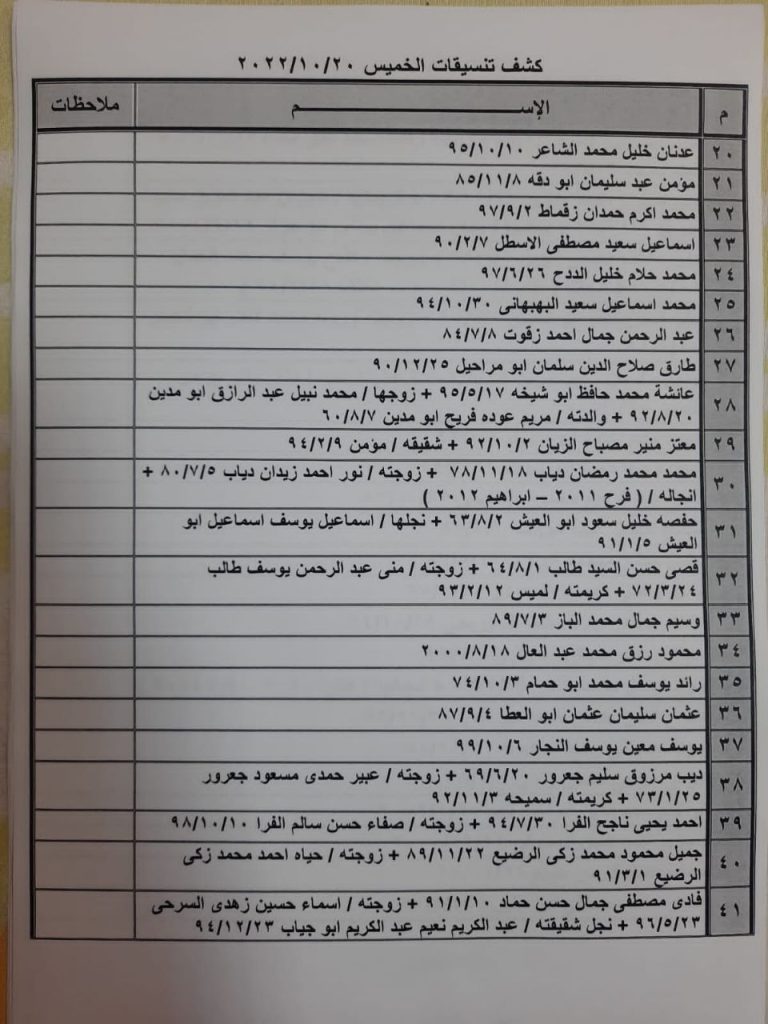 كشف تنسيقات الخميس ٢٠٢٢/١٠/٢٠
م الإســـــــــــــــــم ملاحظات
٢٠ عدنان خليل محمد الشاعر ٩٥/١٠/١٠
٢١ مؤمن عبد سليمان ابو دقه ٨٥/١١/٨
٢٢ محمد اكرم حمدان زقماط ٩٧/٩/٢
٢٣ اسماعيل سعيد مصطفى الاسطل ٩٠/٢/٧
٢٤ محمد حلام خليل الددح ٩٧/٦/٢٦
٢٥ محمد اسماعيل سعيد البهبهانى ٩٤/١٠/٣٠
٢٦ عبد الرحمن جمال احمد زقوت ٨٤/٧/٨
٢٧ طارق صلاح الدين سلمان ابو مراحيل ٩٠/١٢/٢٥
٢٨ عائشة محمد حافظ ابو شيخه ٩٥/٥/١٧ + زوجها / محمد نبيل عبد الرازق ابو مدين
٩٢/٨/٢٠ + والدته / مريم عوده فريح ابو مدين ٦٠/٨/٧
٢٩ معتز منير مصباح الزيان ٩٢/١٠/٢ + شقيقه / مؤمن ٩٤/٢/٩
٣٠ محمد محمد رمضان دياب ٧٨/١١/١٨ + زوجته / نور احمد زيدان دياب ٨٠/٧/٥ +
انجاله / ( فرح ٢٠١١ – ابراهيم ٢٠١٢ )
٣١ حفصه خليل سعود ابو العيش ٦٣/٨/٢ + نجلها / اسماعيل يوسف اسماعيل ابو
العيش ٩١/١/٥
٣٢ قصى حسن السيد طالب ٦٤/٨/١ + زوجته / منى عبد الرحمن يوسف طالب
٧٢/٣/٢٤ + كريمته / لميس ٩٣/٢/١٢
٣٣ وسيم جمال محمد الباز ٨٩/٧/٣
٣٤ محمود رزق محمد عبد العال ٢٠٠٠/٨/١٨
٣٥ رائد يوسف محمد ابو حمام ٧٤/١٠/٣
٣٦ عثمان سليمان عثمان ابو العطا ٨٧/٩/٤
٣٧ يوسف معين يوسف النجار ٩٩/١٠/٦
٣٨ ديب مرزوق سليم جعرور ٦٩/٦/٢٠ + زوجته / عبير حمدى مسعود جعرور
٧٣/١/٢٥ + كريمته / سميحه ٩٢/١١/٣
٣٩ احمد يحيى ناجح الفرا ٩٤/٧/٣٠ + زوجته / صفاء حسن سالم الفرا ٩٨/١٠/١٠
٤٠ جميل محمود محمد زكى الرضيع ٨٩/١١/٢٢ + زوجته / حياه احمد محمد زكى
الرضيع ٩١/٣/١
٤١ فادى مصطفى جمال حسن حماد ٩١/١/١٠ + زوجته / اسماء حسين زهدى السرحى
٩٦/٥/٢٣ + نجل شقيقته / عبد الكريم نعيم عبد الكريم ابو جياب ٩٤/١٢/٢٣